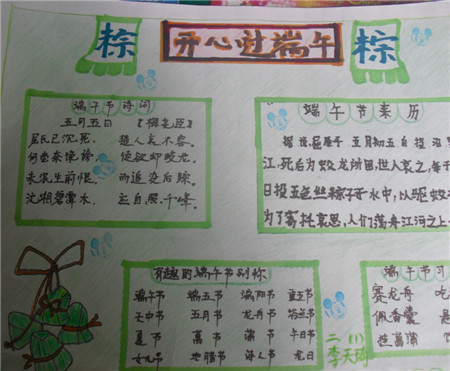 粽
开心过端午
粽
端午节诗词
五月五日 【梅尧臣】
屈氏已沉死, 楚人哀不容。
何尝奈谗谤, 徒欲却蛟龙。
未泯生前恨, 而追没后踪。
沅湘碧潭水,
千峰。
端午节来历
五月初五自投汨
江,死后为蛟龙所困,世人哀之,每于
日投五色丝粽子于水中,以驱蛟
为了寄托哀思,人们荡舟江河之上
有趣的端午节别称
端午节 端五节 端阳节 重五节
天中节 五月节 龙舟节
夏节 蒲节 午日节
女儿节 地腊节 诗人节 龙日
端午节习
赛龙舟 吃
佩香囊 悬
二(1)
李天琦